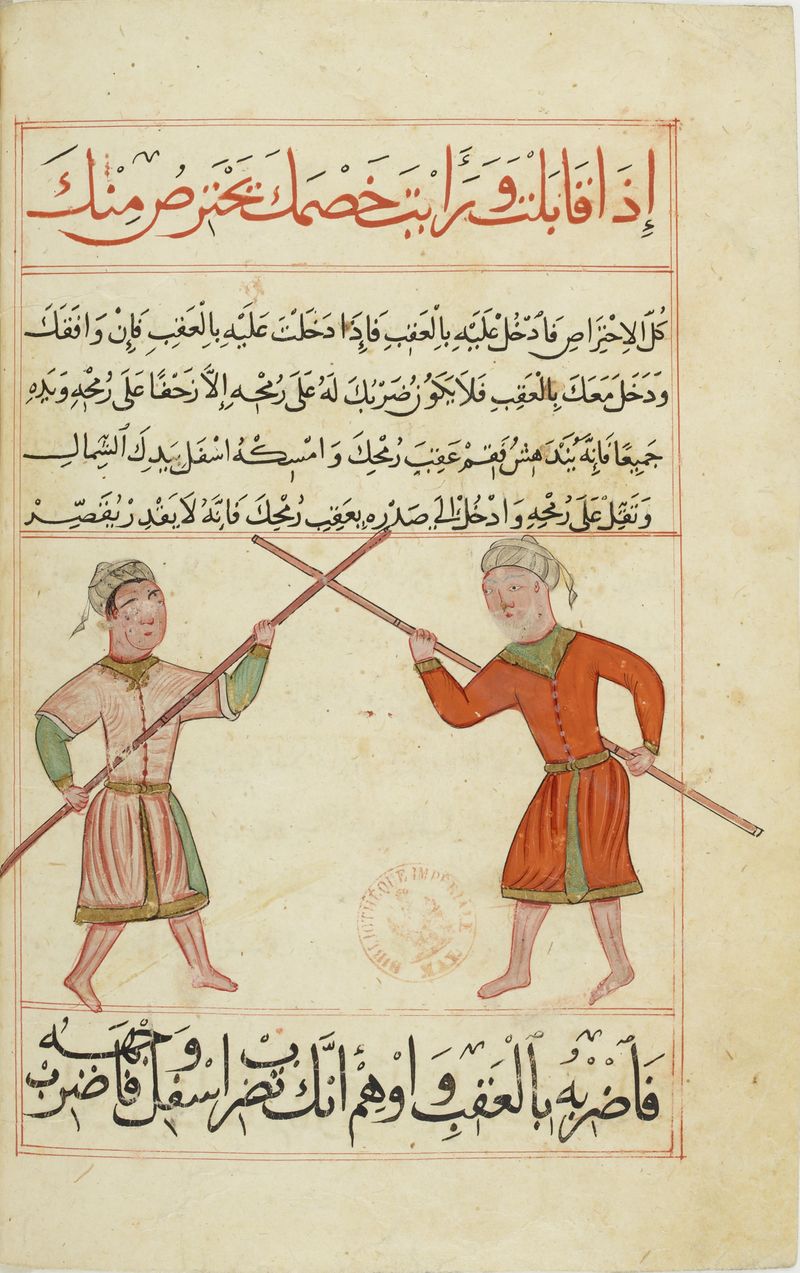 إِذَا قَابَلْتَ وَرَأَيْتَ خَصْمَكَ يَحْتَرِصُ مِنْكَ
كُلَّ الاِحْتِرَاصِ فَادْخُلْ عَلَيْهِ بِالْعَقِبِ فَإِذَا دَخَلْتَ عَلَيْهِ بِالْعَقِبِ فَإِنْ وَافَقَكَ
وَدَخَلَ مَعَكَ بِالْعَقِبِ فَلَا يَكُونُ ضَرْبُكَ لَهُ عَلَى رُمْحِهِ إِلَّا زَحْفًا عَلَى رُمْحِهِ وَيَدِهِ
جَمِيعًا فَإِنَّهُ يَنْدَهِشُ فَقِمْ عَقِبَ رُمْحِكَ وَامْسِكْهُ اسْفَلَ بِيَدِكَ الشِّمَالِ
وَتَقِّلْ عَلَى رُمْحِهِ وَادْخُلْ إِلَى صَدْرِهِ بِعَقِبِ رُمْحِكَ فَإِنَّهُ لَا يَقْدِرْ
BIBLIOTHÈQUE IMPÉRIALE
فَاضْرِبْهُ بِالْعَقِبِ وَاوْهِمْ أَنَّكَ تَضْرِبْ اسْفَلْ فَاضْرِبْ وَجْهَهُ